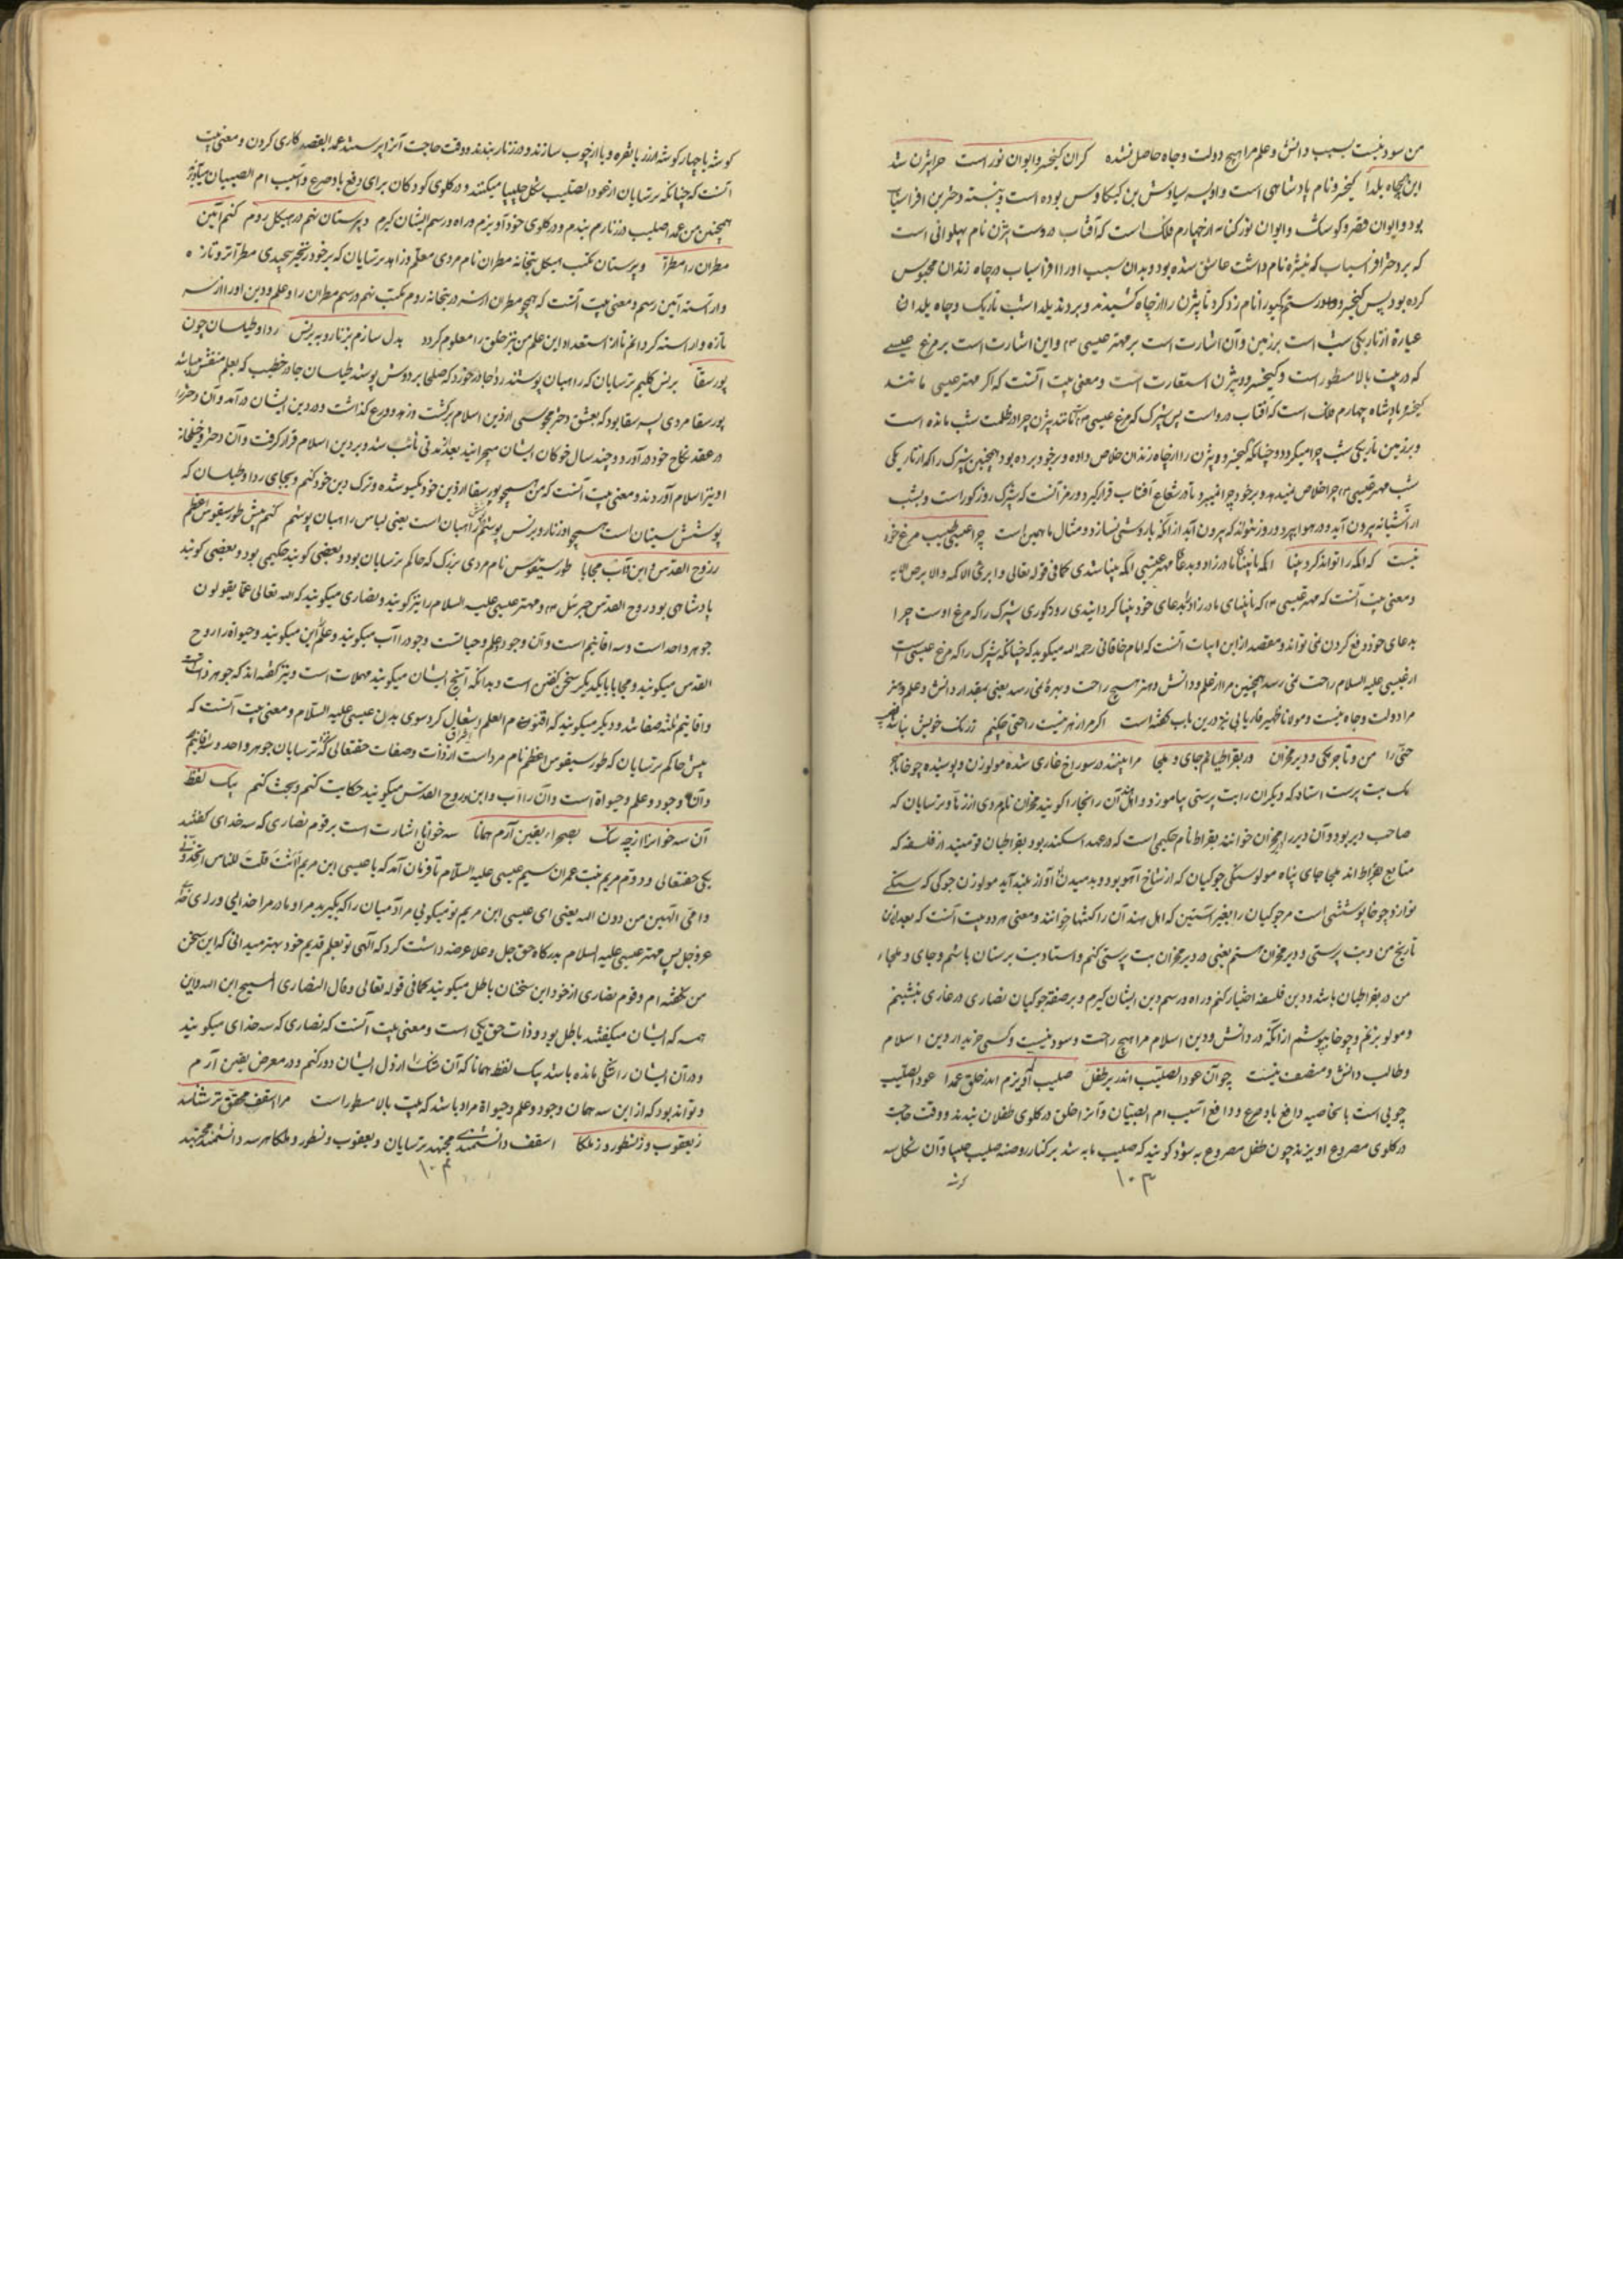 من سود نیست بسبب دانش و علم مرا هیچ دولت و جاه حاصل نشده گران کیخسرو ایوان نور است چرا بیژن شد
این چاه یلدا کیخسرو نام پادشاهی است و او پسر سیاوش بن کیکاوس بوده است و نبسته دختر بن افراسیاب
بود و ایوان قصر و کوشک و ایوان نور کنایه از چهارم فلک است که آفتاب دروست بیژن نام پهلوانی است
که بر دختر افراسیاب که منیژه نام داشت عاشق شده بود و بدان سبب او را افراسیاب در چاه زندان محبوس
کرده بود پس کیخسرو رستم کیو را نامزد کرد تا بیژن را از چاه کشیدند و بردند یلدا شب تاریک و چاه یلدا ان
عبارة از تاریکی شب است برزمین و آن اشارت است بر مهتر عیسی ع م و این اشارت است بر مرغ عیسے
که در بیت بالا مسطور است و کیخسرو و بیژن استعارت است و معنی بیت آنست که اگر مهتر عیسی مانند
کیخسرو پادشاه چهارم فلک است که آفتاب درو است پس شپرک که مرغ عیسی است مانند بیژن چرا در ظلمت شب مانده است
و برزمین تاریکی شب چرا میگردد و چنانکه کیخسرو بیژن را از چاه زندان خلاص داده و برخود برده بود همچنین شپرک را که از تاریکی
شب مهتر عیسی ع م چرا خلاص نمیدهد و برخود چرا نمیبرد تا در شعاع آفتاب قرار گیرد و رمز آنست که شپرک روز کور است و بشب
از آشیانه بیرون آید و در هوا پرد و روز نتواند که بیرون آید از آنکه با روشنی نسازد و مثال ما همین است چرا عیسی طبیب مرغ خود
نیست که اکمه را تواند کرد بینا اکمه نابینای مادرزاد و بدعای مهتر عیسی اکمه بینا شدی کما فی قوله تعالی و ابرئ الاکمه و الابرص الایه
و معنی بیت آنست که مهتر عیسی ع م که نابینای مادرزاد را بدعای خود بینا گردانیدی روز کوری شپرک را که مرغ اوست چرا
بدعای خود دفع کردن نمی تواند و مقصد از این ابیات آنست که امام خاقانی رحمه الله میگوید که چنانکه شپرک را که مرغ عیسی است
از عیسی علیه السلام راحت نمی رسد همچنین مرا از علم و دانش و هنر هیچ راحت و بهره نمی رسد یعنی بمقدار دانش و علم و هنر
مرا دولت و جاه نیست و مولانا ظهیر فاریابی نیز درین باب گفته است اگر مرا ز هنر نیست راحتی چکنم ز رنگ خویش نباشد نصیب
حنی را من و ناجرمکی و دیر مخران در بقراطیانم جای و ملجا مرا بینند در سوراخ غاری شده مولوزن و پوشیده چوخا
مک بت پرست استاد که دیگران را بت پرستی بیاموزد و اهل آن را انجا را گویند مخران نام مردی از زهاد ترسایان که
صاحب دیر بود و آن دیر را دیر مخران خوانند بقراط نام حکیمی است که در عهد اسکندر بود بقراطیان قومیند از فلسفه که
متابع بقراط اند ملجا جای پناه مولو سنگی جوکیان که از شاخ آهو بود و بدمیدن آواز بلند آید مولوزن جوکی که سنگی
نوازد چوخا پوششی است مر جوکیان را بغیر آستین که اهل هند آن را کنتها خوانند و معنی هر دو بیت آنست که بعد ازین
تاریخ من و بت پرستی و دیر مخران هستم یعنی در دیر مخران بت پرستی کنم و استاد بت پرستان باشم و جای و ملجاء
من در بقراطیان باشد و دین فلسفه اختیار کنم و راه و رسم دین ایشان گیرم و بر صفة جوکیان نصاری در غاری بنشینم
و مولو بزنم و چوخا بپوشم از آنکه در دانش و دین اسلام مرا هیچ راحت و سود نیست و کسی خریدار دین اسلام
و طالب دانش و منصف نیست چو آن عود الصلیب اندر بر طفل صلیب آویزم اندر حلق عمدا عود الصلیب
چوبی است با خاصیه دافع باد صرع و دافع آسیب ام الصبیان و آنرا در کلوی طفلان بندند و وقت حاجت
در کلوی مصروع آویزند چون طفل مصروع به شود گویند که صلیب ما به شد بر کنار روضه صلیب چلیپا و آن شکل سه
گوشه
۱۰۳
کوشه یا چهار کوشه از زر یا نقره و یا از چوب سازند و در زنار بندند و وقت حاجت آنرا پرستند عمد القصد کاری کردن و معنی بیت
آنست که چنانکه ترسایان از عود الصلیب شکل چلیپا میکنند و در کلوی کودکان برای دفع باد صرع و آسیب ام الصبیان میآویزند
همچنین من عمدا صلیب در زنارم بندم و در کلوی خود آویزم و راه و رسم ایشان گیرم دبیرستان نهم در هیکل روم کنم آیین
مطران را مطرا دبیرستان مکتب هیکل بتخانه مطران نام مردی معلم و زاهد ترسایان که بر خود زنجیر پیچیدی مطرا تر و تازه
و آراسته آیین رسم و معنی بیت آنست که همچو مطران ارسنه در بتخانه روم مکتب نهم و رسم مطران را و علم و دین او را از سر
تازه و آراسته گردانم تا از استعداد این علم من بر خلق را معلوم گردد بدل سازم بزنار و به برنس ردا و طیلسان چون
پور سقا برنس کلیم ترسایان که راهبان پوشند ردا چادر خورد که صلحا بر دوش پوشند طیلسان چادر خطیب که بعلم منقش باشد
پور سقا مردی پسر سقا بود که بعشق دختر مجوسی از دین اسلام برگشت و زهد و ورع گذاشت و در دین ایشان درآمد و آن دختر را
در عقد نکاح خود درآورد و چند سال خوکان ایشان میچرانید بعد از مدتی تائب شد و بر دین اسلام قرار گرفت و آن دختر و خلخانه
او نیز اسلام آوردند و معنی بیت آنست که من همچو پور سقا از دین خود یکسو شده و ترک دین خود کنم و بجای ردا و طیلسان که
پوشش سنیان است همچو او زنار و برنس پوشم که راهبان است یعنی لباس راهبان پوشم کنم پیش طورسیقوس اعظم
ز روح القدس و ابن و اب مجابا طورسیقوس نام مردی بزرک که حاکم ترسایان بود و بعضی گویند حکیمی بود و بعضی گویند
پادشاهی بود روح القدس جبرئل ع م و مهتر عیسی علیه السلام را نیز گویند و نصاری میگویند که الله تعالی عما یقولون
جوهر واحد است و سه اقانیم است و آن وجود و علم و حیاتست وجود را آب میگویند و علم را ابن میگویند و حیواة را روح
القدس میگویند و مجابا با یکدیگر سخن گفتن است و بدانکه آنچ ایشان میگویند مهملات است و نیز گفته اند که جوهر ذات است
و اقانیم ثلثه صفات و دیگر میگویند که اقنوم العلم انتقال کرد سوی بدن عیسی علیه السلام و معنی بیت آنست که
پیش حاکم ترسایان که طورسیقوس اعظم نام مرد است از ذات و صفات حقتعالی که ترسایان جوهر واحد و سه اقانیم
و آن وجود و علم و حیواة است و آن را اب و ابن و روح القدس میگویند حکایت کنم و بحث کنم بیک لفظ
آن سه خوان را از چه شک بصحراء یقین آرم همانا سه خوانان اشارت است بر قوم نصاری که سه خدای گفتند
یکی حقتعالی و دوم مریم بنت عمران سیم عیسی علیه السلام تا فرمان آمد که یا عیسی ابن مریم أأنت قلت للناس اتخذونی
و امی الهین من دون الله یعنی ای عیسی ابن مریم تو میگویی مر آدمیان را که بگیرید مرا و مادر مرا خدایی ورای خدا
عزوجل پس مهتر عیسی علیه السلام بدرگاه حق جل و علا عرضه داشت کرد که الهی تو بعلم قدیم خود بهتر میدانی که این سخن
من نگفته ام و قوم نصاری از خود این سخنان باطل میگویند کما فی قوله تعالی و قال النصاری المسیح ابن الله و این
همه که ایشان میگفتند باطل بود و ذات حق یکی است و معنی بیت آنست که نصاری که سه خدای میگویند
و در آن ایشان را شکی مانده باشد بیک لفظ همانا که آن شک را از دل ایشان دور کنم و در معرض یقین آرم
و تواند بود که از این سه همان وجود و علم و حیواة مراد باشد که بیت بالا مسطور است مرا اسقف محقق تر شناسد
ز یعقوب و ز نسطور و ز ملکا اسقف دانشمند مجتهد ترسایان و یعقوب و نسطور و ملکا هر سه دانشمند مجتهد